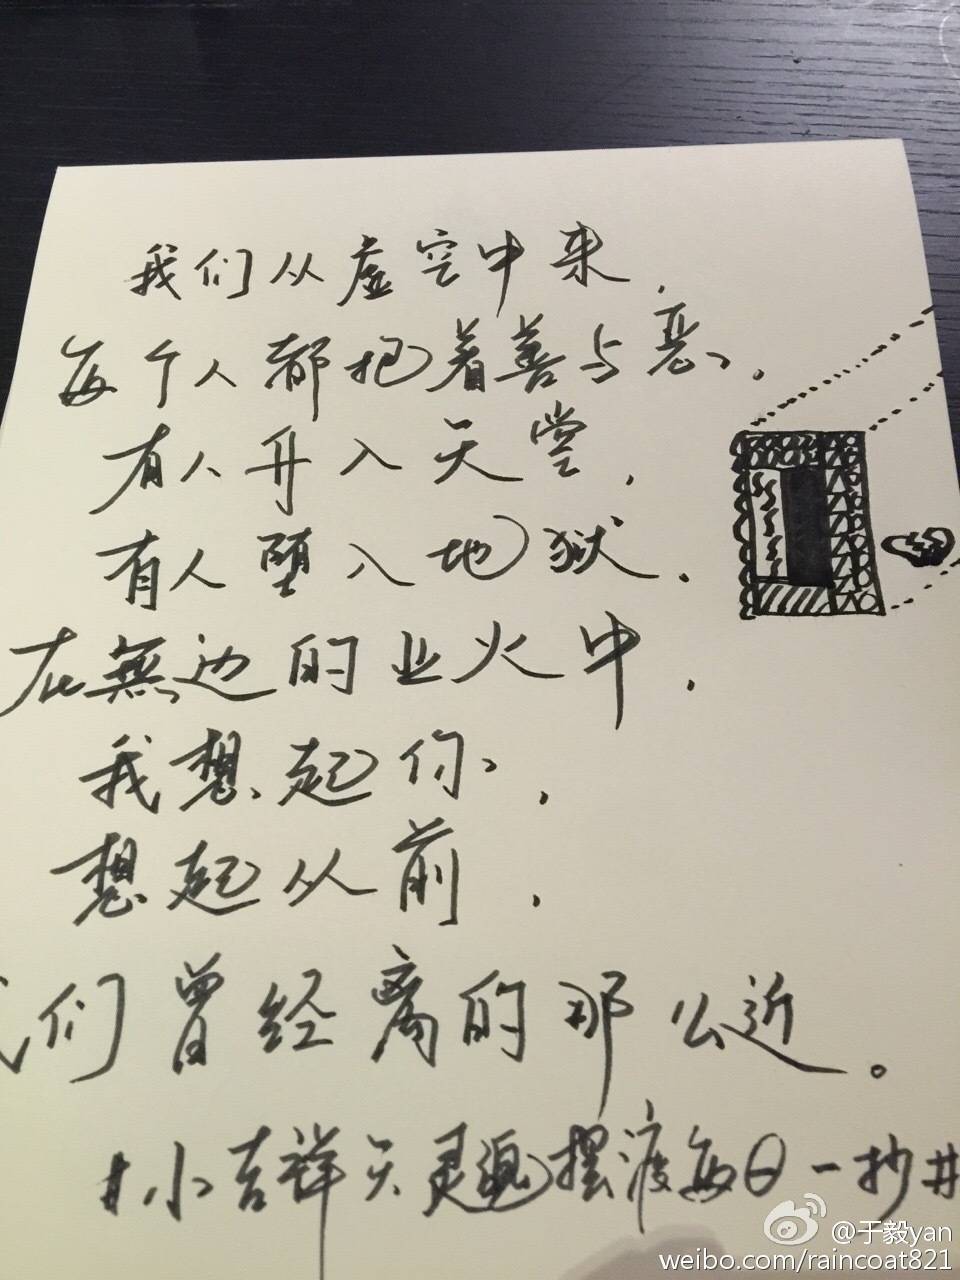 我们从虚空中来，
每个人都把着善与恶，
有人升入天堂，
有人堕入地狱，
在無边的业火中，
我想起你，
想起从前，
我们曾经离的那么近。
#小吉祥天灵魂摆渡每日一抄#
@于毅yan
weibo.com/raincoat821